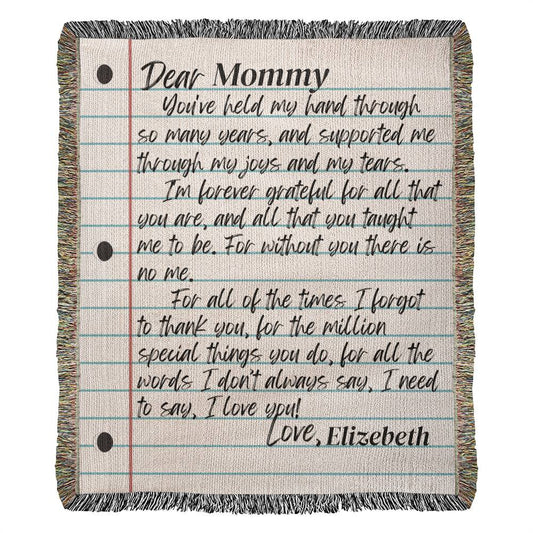 Dear Mommy
You've held my hand through
so many years, and supported me
through my joys and my tears.
I'm forever grateful for all that
you are, and all that you taught
me to be. For without you there is
no me.
For all of the times I forgot
to thank you, for the million
special things you do, for all the
words I don't always say, I need
to say, I love you!
Love, Elizebeth